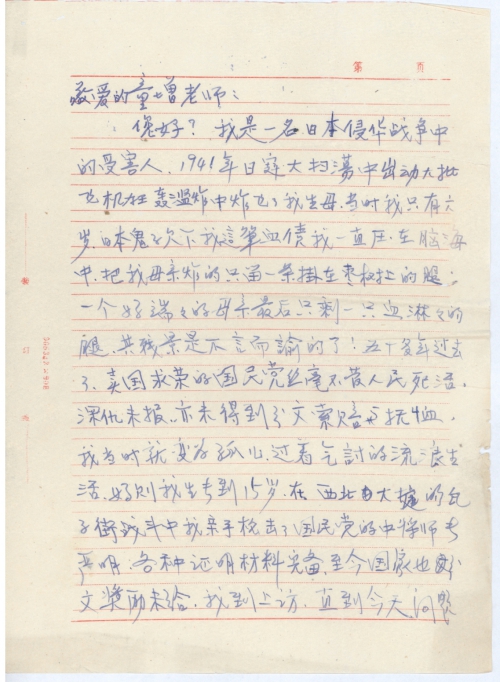 第 页
敬爱的童增老师：
您好？我是一名日本侵华战争中
的受害人，1941年日寇大扫荡中出动大批
飞机狂轰滥炸中炸飞了我生母，当时我只有六
岁，日本鬼子欠下我這筆血债我一直压在脑海
中，把我母亲炸的只留一条掛在枣树上的腿；
一个好端々的母亲最后只剩一只血淋々的
腿，其残景是不言而諭的了！五十多年过去
了，卖国求荣的国民党丝毫不管人民死活，
深仇未报，亦未得到分文索赔与抚恤，
我当时就变为孤儿，过着乞討的流浪生
活，好则我生长到15岁，在西北大捷的瓦
子街战斗中我亲手枪击了国民党的中将师长
严明，各种证明材料完备，至今国家也分
文奖励未给，我到上访，直到今天问